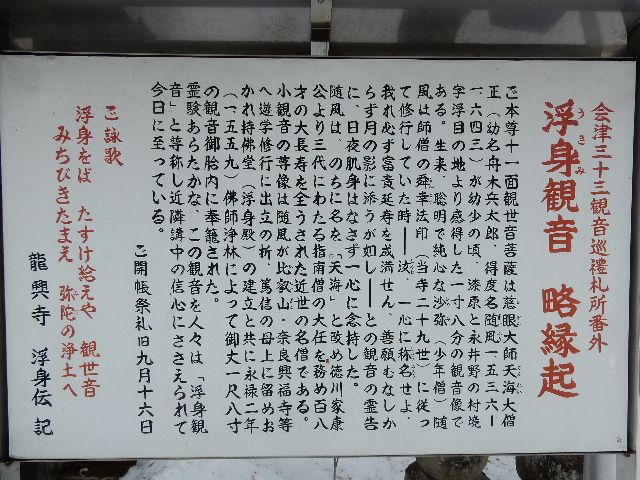 会津三十三観音巡禮札所番外
浮身観音 略縁起
うきみ
ご本尊十一面観世音菩薩は慈眼大師天海大僧
正(幼名舟木兵太郎、得度名随風一五三六ー
一六四三)が幼少の頃、漆原と永井野の村境
字浮目の地より感得した一寸八分の観音像で
ある。生来、聡明で純心な沙弥(少年僧)随
風は師僧の舜幸法印(当寺二十九世)に従っ
て修行していた時━━汝、一心に称名せよ、
我れ必ず富貴延寿を成満せん、善願むなしか
らず月の影に添うが如し━━との観音の霊告
に、日夜肌身はなさず一心に念持した。
随風は、のちに名を「天海」と改め徳川家康
公より三代にわたる指南僧の大任を務め百八
才の大長寿を全うされた近世の名僧である。
小観音の尊像は随風が比叡山・奈良興福寺等
へ遊学修行に出立の折、篤信の母上に留めお
かれ持佛堂(浮身殿)の建立と共に永禄二年
(一五五九)佛師浄林によって御丈一尺八寸
の観音御胎内に奉籠された。
霊験あらたかな、この観音を人々は「浮身観
音」と等称し近隣講中の信心にささえられて
今日に至っている。
ご開帳祭礼旧九月十六日
ご詠歌
浮身をば たすけ給えや 観世音
みちびきたまえ 弥陀の浄土へ
龍興寺 浮身伝記